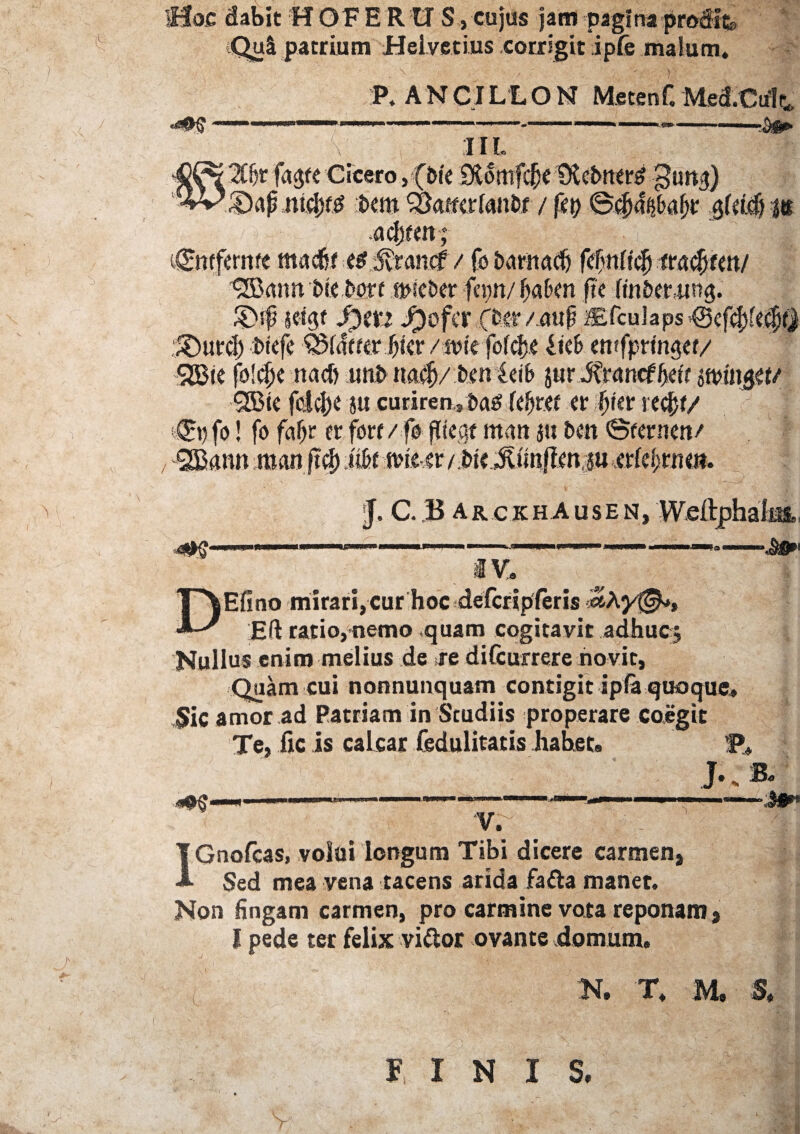 Hoc dabit HOFERUS, cujus jam pagina prodit,
Quâ patrium Helvetius corrigit ipse malum.
P. ANCILLON Metens. Med. Cult.
III.
WAhr sagte Cicero, (die Römsche Redners Zung)
Daß nichts dem Vatterlandt / sey Schätzbahr gleich zu
achten;
Entfernte macht es Kranck / so darnach sehnlich trachten/
Wann die dort wieder seyn/ haben sie linderung.
Diß zeigt Herr Hofer (der / auß Æsculaps Geschlecht)
Durch diese Blätter hier / wie solche Lieb entspringet/
Wie solche nach und nach/ den Leib zur Kranckheit zwinget/
Wie solche zu curiren, das lehret er hier recht/
Ey so! so fahr er fort / so fliegt man zu den Sternen/
Wann man sich übt wie er / die Künsten zu erlehrnen.
J. C. BARCKHAUSEN, Westphalus.
IV.
DEsino mirari, cur hoc descripseris ἄλγ@,
Est ratio, nemo quam cogitavit adhuc;
Nullus enim melius de re discurrere novit,
Quàm cui nonnunquam contigit ipsa quoque.
Sic amor ad Patriam in Studiis properare coëgit
Te, sic is calcar sedulitatis habet. P.
J. B.
V.
IGnoscas, volui longum Tibi dicere carmen,
Sed mea vena tacens arida facta manet.
Non fingam carmen, pro carmine vota reponam,
I pede ter felix victor ovante domum.
N. T. M. S.
FINIS.